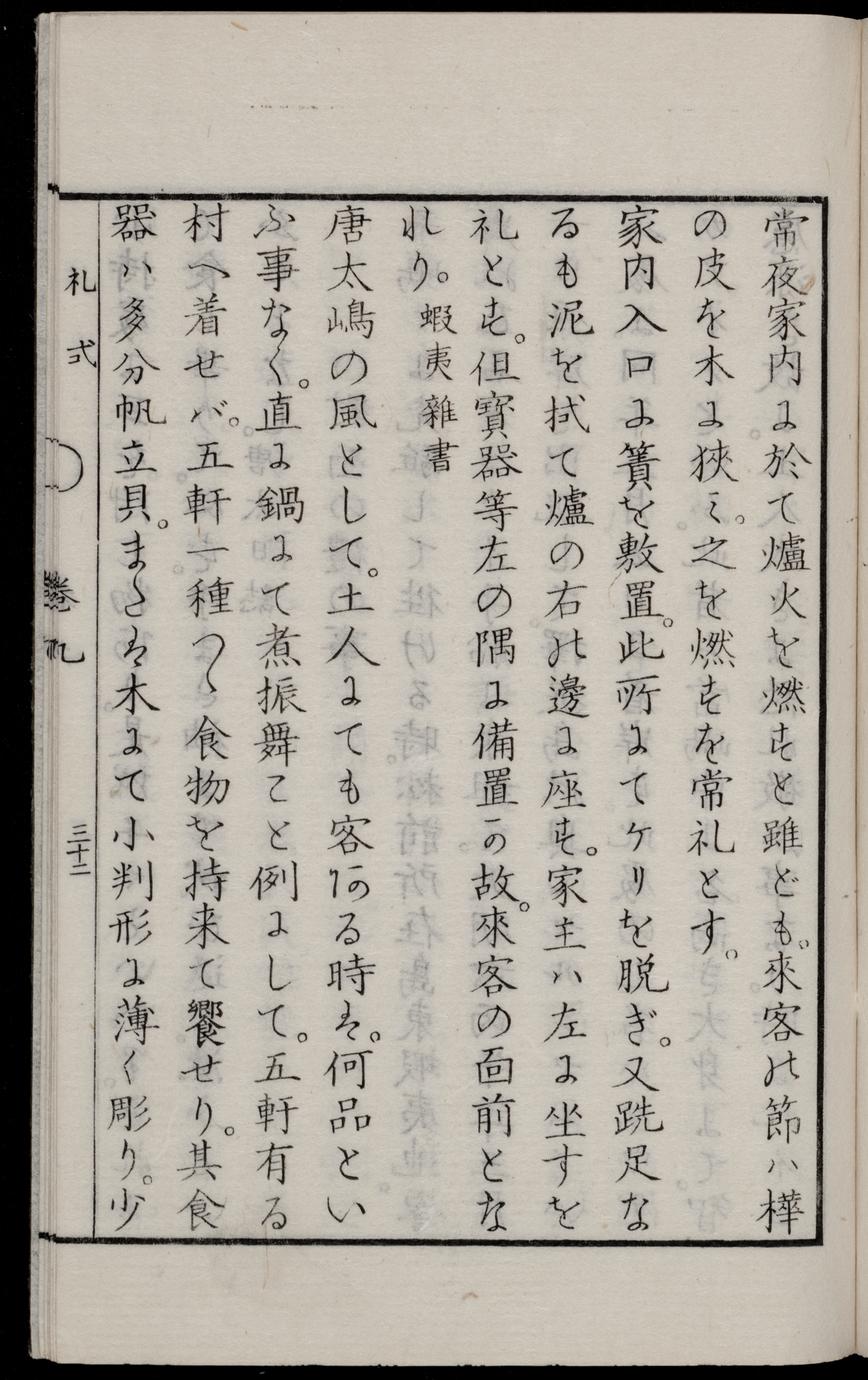 常夜家内に於て爐火を燃すと雖ども。來客の節ハ樺
の皮を木に狹ミ。之を燃すを常礼とす。
家内入口に簀を敷置。此所にてケリを脱ぎ。又跣足な
るも泥を拭て爐の右の邊に座す。家主ハ左に坐すを
礼とす。但寶器等左の隅に備置可故。來客の面前とな
れり。蝦夷雜書
唐太嶋の風として。土人にても客ある時は。何品とい
ふ事なく。直に鍋にて煮振舞こと例にして。五軒有る
村へ着せバ。五軒一種つゝ食物を持来て饗せり。其食
器ハ多分帆立貝。または木にて小判形に薄く彫り。少
礼式
巻九
三十二